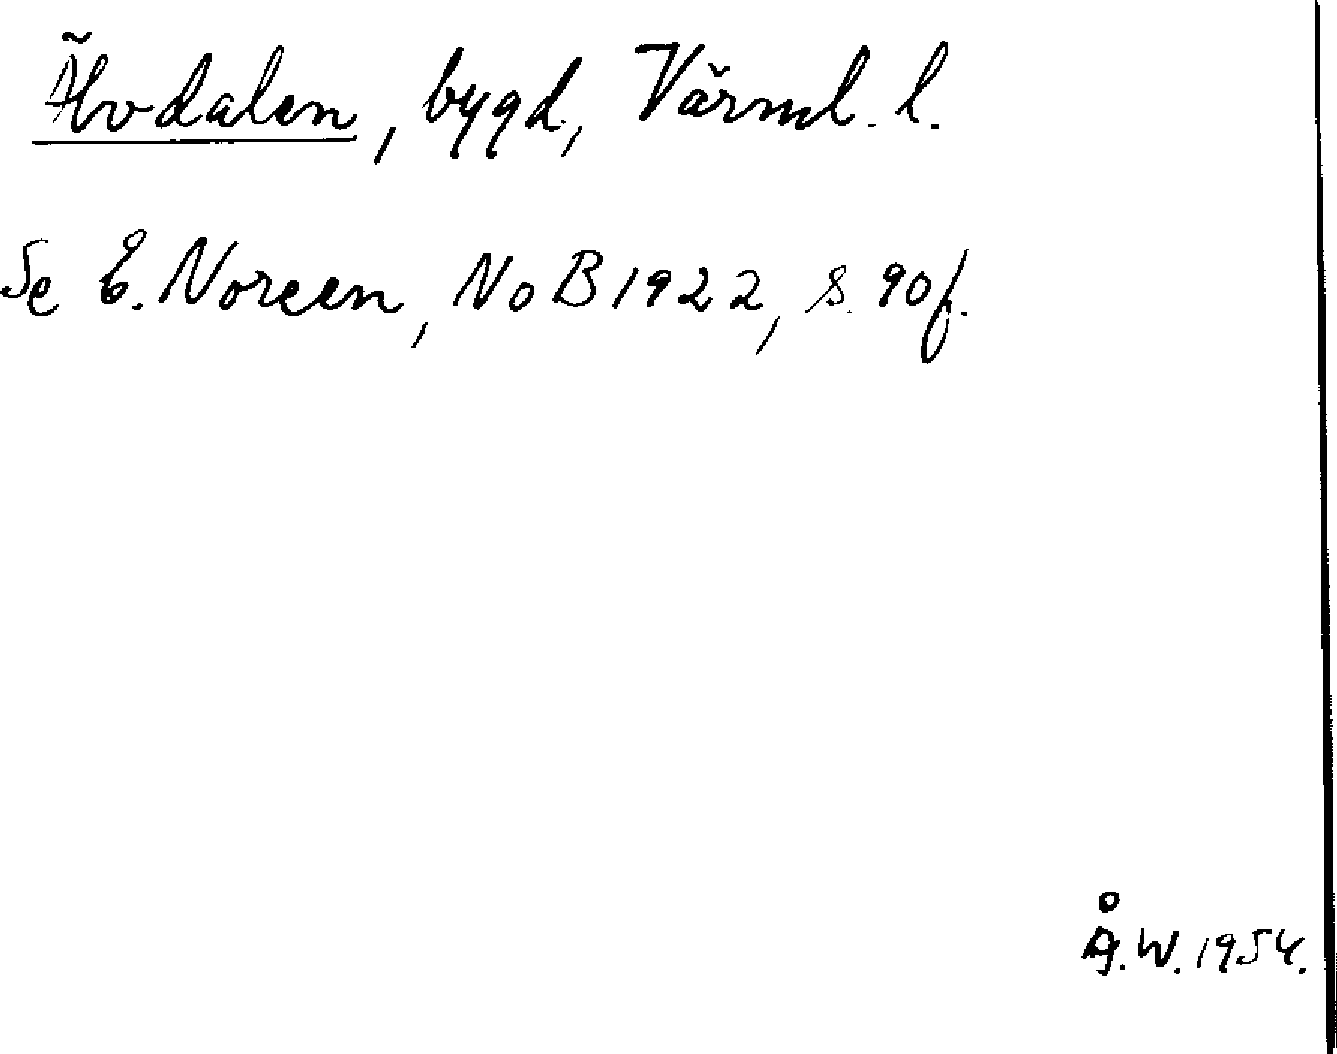 Älvdalen, bygd, Värml. l.
Se E. Noreen, NoB 1922, s. 90 f.
Å.W. 1954.